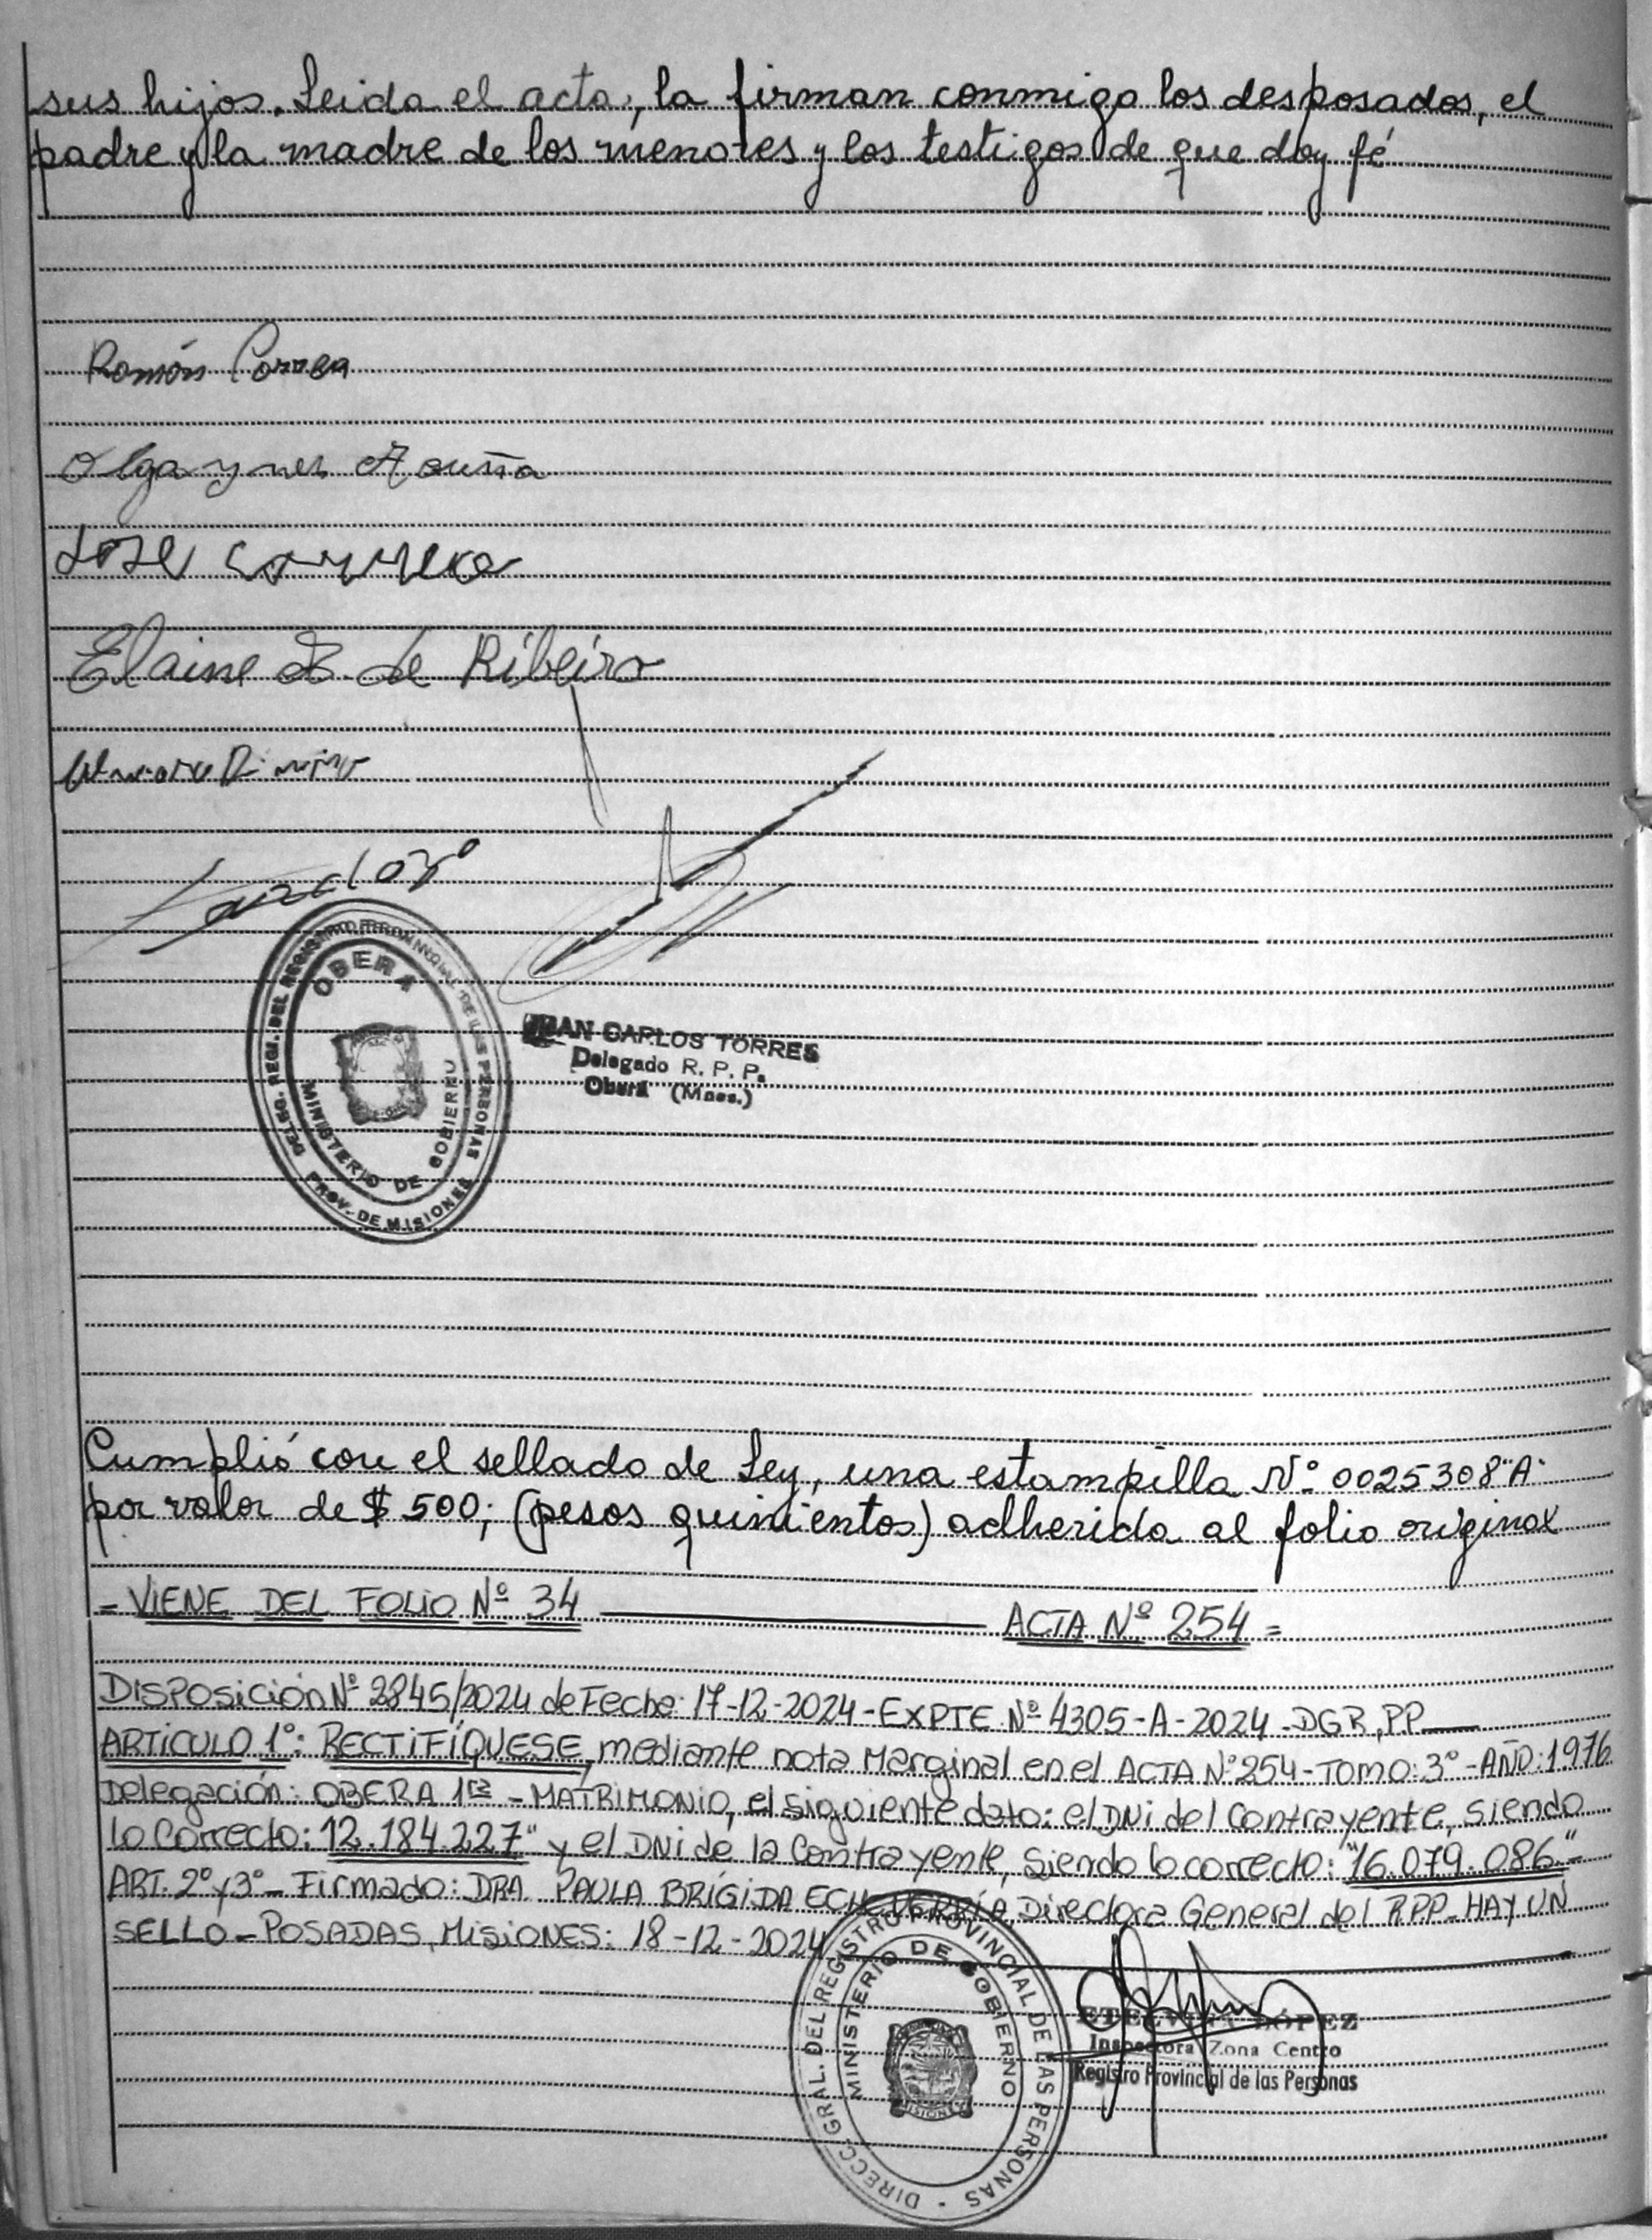 sus hijos. Leida el acta, la firman conmigo los desposados, el
padre y la madre de los menores y los testigos de que doy fé
Ramón Correa
Olga ynes Acuña
José Correa
Elaine S. de Ribeiro
DELEG. REGI. DEL REGISTRO PROVINCIAL DE LAS PERSONAS
OBERA
MINISTERIO DE GOBIERNO
PROV. DE MISIONES
JUAN CARLOS TORRES
Delegado R. P. P.
Oberá (Mnes.)
Cumplió con el sellado de Ley, una estampilla Nº 0025308"A"
por valor de $ 500; (pesos quinientos) adherida al folio original
- VIENE DEL FOLIO Nº 34 ACTA Nº 254 =
DISPOSICIÓN Nº 2845/2024 de Fecha: 17-12-2024 - EXPTE Nº 4305-A-2024 - DGR,PP
ARTICULO 1º: RECTIFÍQUESE, mediante nota Marginal en el ACTA Nº 254 - TOMO: 3º - AÑO: 1.976
Delegación: OBERA 1ra - MATRIMONIO, el siguiente dato: el DNI del Contrayente, siendo
lo Correcto: 12.184.227" y el DNI de la Contrayente, siendo lo correcto: "16.079.086"-
ART. 2º y 3º - Firmado: DRA. PAULA BRÍGIDA ECHEVERRÍA, Directora General del RPP - HAY UN
SELLO - POSADAS, MISIONES: 18-12-2024
DIRECC. GRAL. DEL REGISTRO PROVINCIAL DE LAS PERSONAS
MINISTERIO DE GOBIERNO
MISIONES
ETELVINA LÓPEZ
Inspectora Zona Centro
Registro Provincial de las Personas